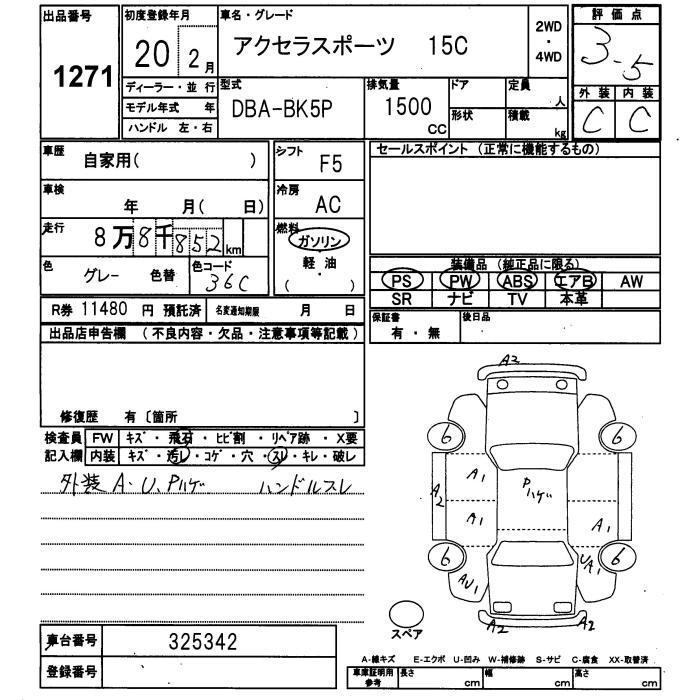 出品番号 1271
初度登録年月 20 2月
車名・グレード アクセラスポーツ 15C
2WD ・ 4WD
評価点 3.5
外装 C 内装 C
ディーラー・並 行
モデル年式 年
ハンドル 左・右
型式 DBA-BK5P
排気量 1500 CC
ドア 形状
定員 人
積載 kg
車歴 自家用( )
シフト F5
セールスポイント (正常に機能するもの)
車検 年 月( 日)
冷房 AC
走行 8万8千852km
燃料 ガソリン 軽・油 ( )
色 グレー 色替 色コード 36C
装備品 (純正品に限る)
PS PW ABS エアB AW
SR ナビ TV 本革
R券 11480 円 預託済 名変通知期限 月 日
保証書 有・無 後日品
出品店申告欄 (不良内容・欠品・注意事項等記載)
修復歴 有 〔箇所 〕
検査員 FW キズ・飛石・ヒビ割・リペア跡・X要
記入欄 内装 キズ・汚レ・コゲ・穴・スレ・キレ・破レ
外装 A・U、Pハゲ ハンドルスレ
A2
6 6
A1 Pハゲ
A2
A1 A1
6 6
AU1 UA1
A2 A2
スペア
車台番号 325342
登録番号
A-線キズ E-エクボ U-凹み W-補修跡 S-サビ C-腐食 XX-取替済
車庫証明用参考 長さ cm 幅 cm 高さ cm